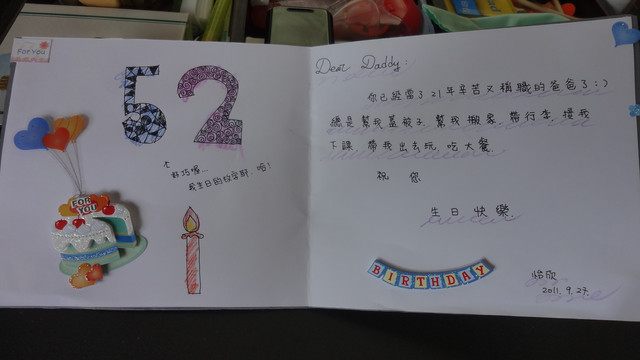 For You
52
FOR YOU
好巧喔...
我生日的
哈!
Dear Daddy:
你已經當了21年辛苦又稱職的爸爸了:)
總是幫我蓋被子,幫我搬家,帶行李,接我
下課,帶我出去玩,吃大餐.
祝 你
生日快樂.
BIRTHDAY
怡欣
2011.9.27.